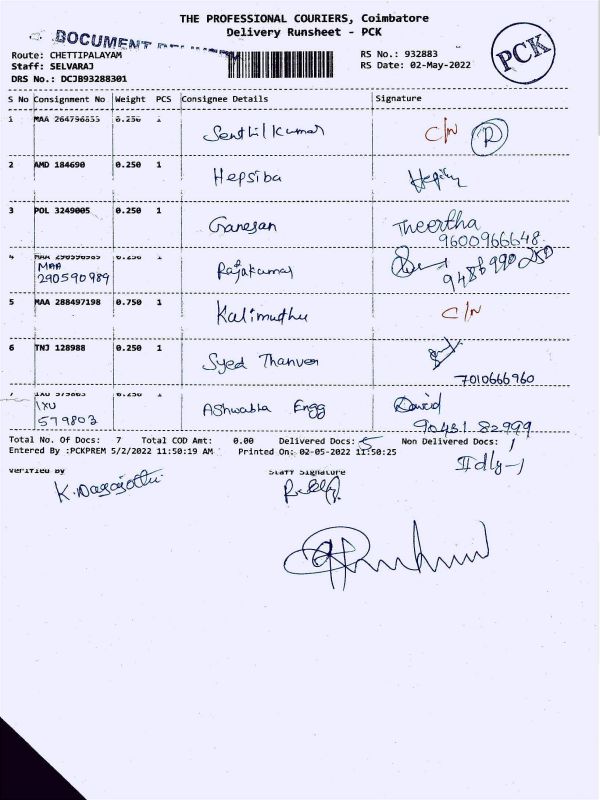 THE PROFESSIONAL COURIERS, Coimbatore
Delivery Runsheet - PCK
DOCUMENT
PCK
Route: CHETTIPALAYAM
Staff: SELVARAJ
DRS No.: DCJB93288301
RS No.: 932883
RS Date: 02-May-2022
S No Consignment No Weight PCS Consignee Details Signature
1 MAA 0.250 1 Senthil Kumar C/N R
2 AMD 184690 0.250 1 Hepsiba
3 POL 3249005 0.250 1 Ganesan Theertha
9600966648
4 MAA 290590989 Rajakumar
5 MAA 288497198 0.750 1 Kalimuthu C/N
6 TNJ 128988 0.250 1 Syed Thanveer
7010666960
IXU 579803 Engg David
90431 82999
Total No. Of Docs: 7 Total COD Amt: 0.00 Delivered Docs: 5 Non Delivered Docs: 1
Entered By :PCKPREM 5/2/2022 11:50:19 AM Printed On: 02-05-2022 11:50:25
IIdly-1
Verified By Staff Signature